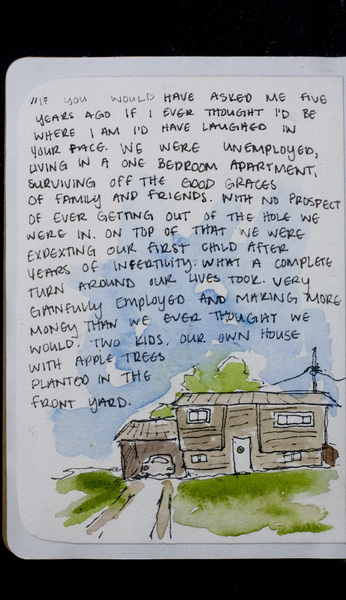 "IF YOU WOULD HAVE ASKED ME FIVE
YEARS AGO IF I EVER THOUGHT I'D BE
WHERE I AM I'D HAVE LAUGHED IN
YOUR FACE. WE WERE UNEMPLOYED,
LIVING IN A ONE BEDROOM APARTMENT,
SURVIVING OFF THE GOOD GRACES
OF FAMILY AND FRIENDS. WITH NO PROSPECT
OF EVER GETTING OUT OF THE HOLE WE
WERE IN. ON TOP OF THAT WE WERE
EXPEXTING OUR FIRST CHILD AFTER
YEARS OF INFERTILITY. WHAT A COMPLETE
TURN AROUND OUR LIVES TOOK. VERY
GAINFULLY EMPLOYED AND MAKING MORE
MONEY THAN WE EVER THOUGHT WE
WOULD. TWO KIDS. OUR OWN HOUSE
WITH APPLE TREES
PLANTED IN THE
FRONT YARD.